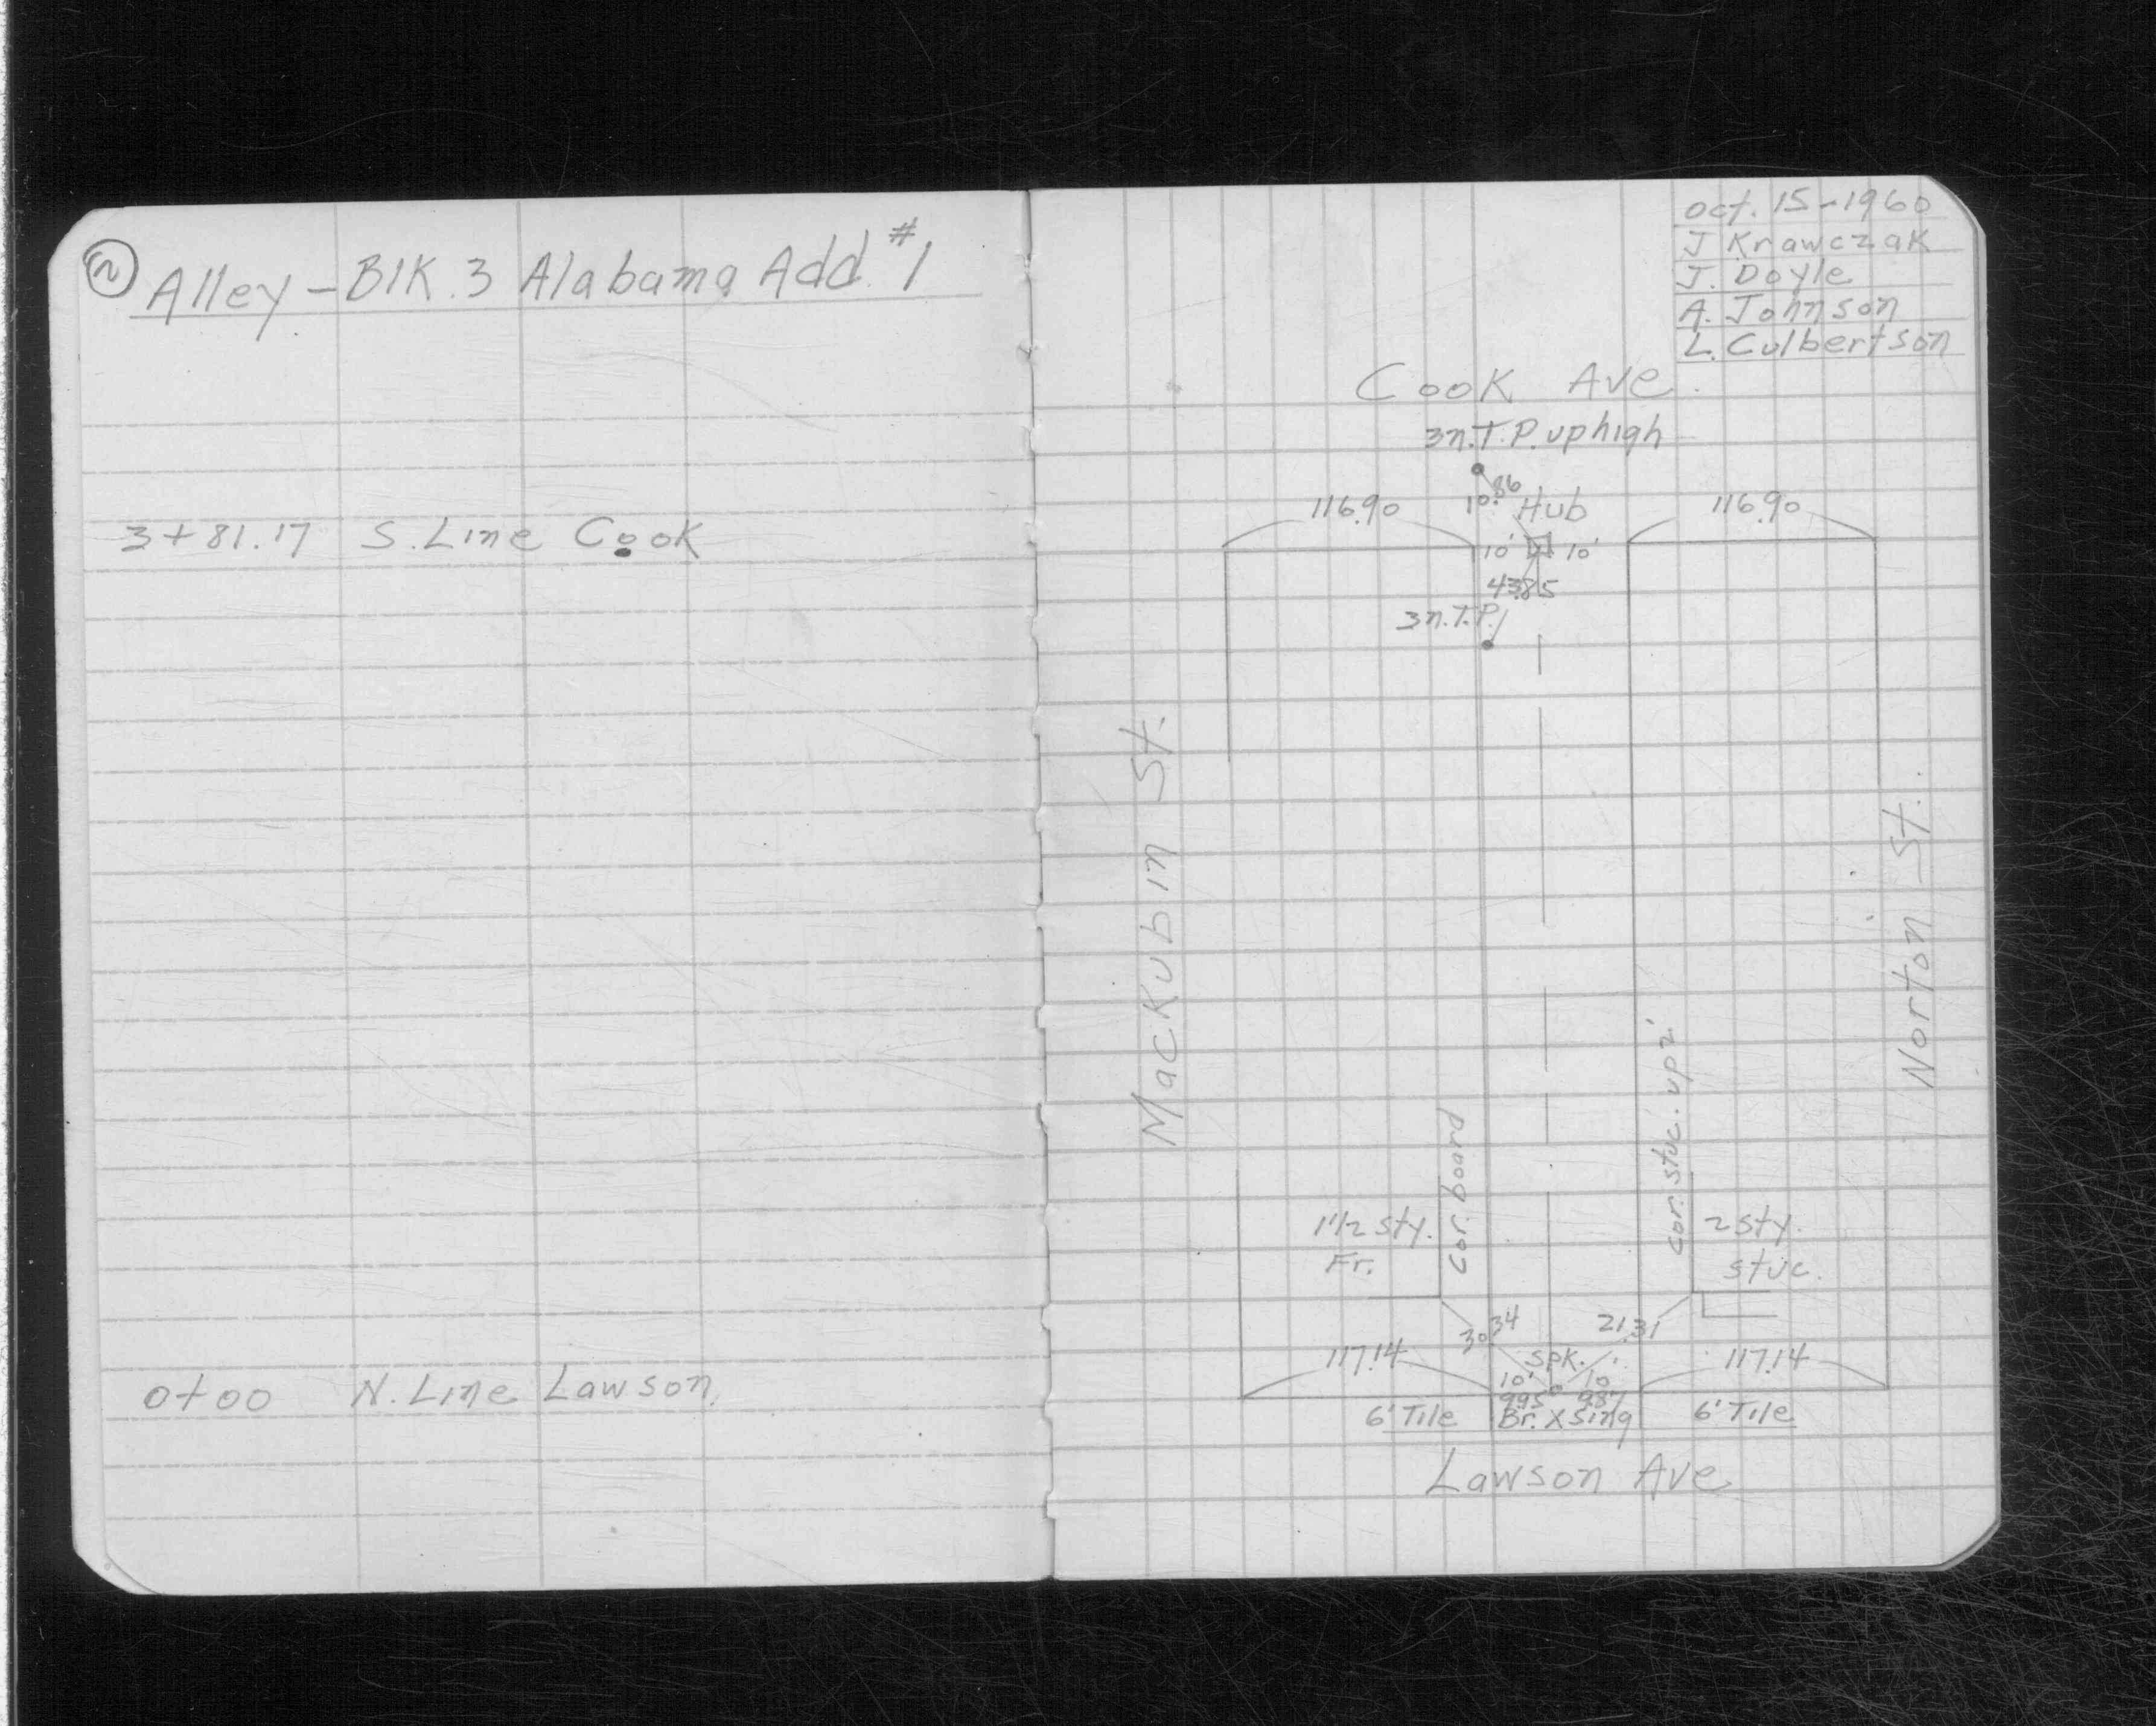 2
Alley - Blk. 3 Alabama Add. #1
3+81.17 S. Line Cook
0+00 N. Line Lawson.
Oct. 15-1960
J Krawczak
J. Doyle
A. Johnson
L. Culbertson
Cook Ave.
3n.T.P. up high
10.86
116.90 Hub 116.90
10' 10'
43.85
3n.T.P.
Mackubin St.
Norton St.
Cor. board
Cor. stuc. up 2'
1 1/2 Sty. 2 Sty.
Fr. Stuc.
30.34 21.31
117.14 Spk. 117.14
10' 10
9.95 9.87
6' Tile Br. Xsing 6' Tile
Lawson Ave